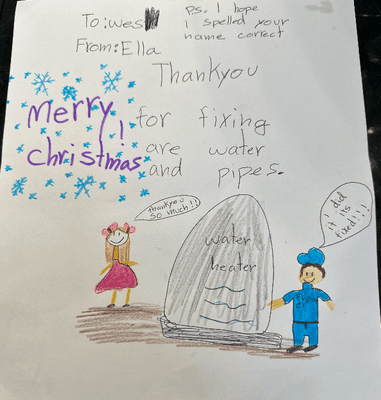 To: wes
Ps. I hope
i spelled your
name correct
From: Ella
Thankyou
Merry
christmas!
for fixing
are water
and pipes.
thankyou
so much!!
water
heater
yay i did
its
fixed!!!